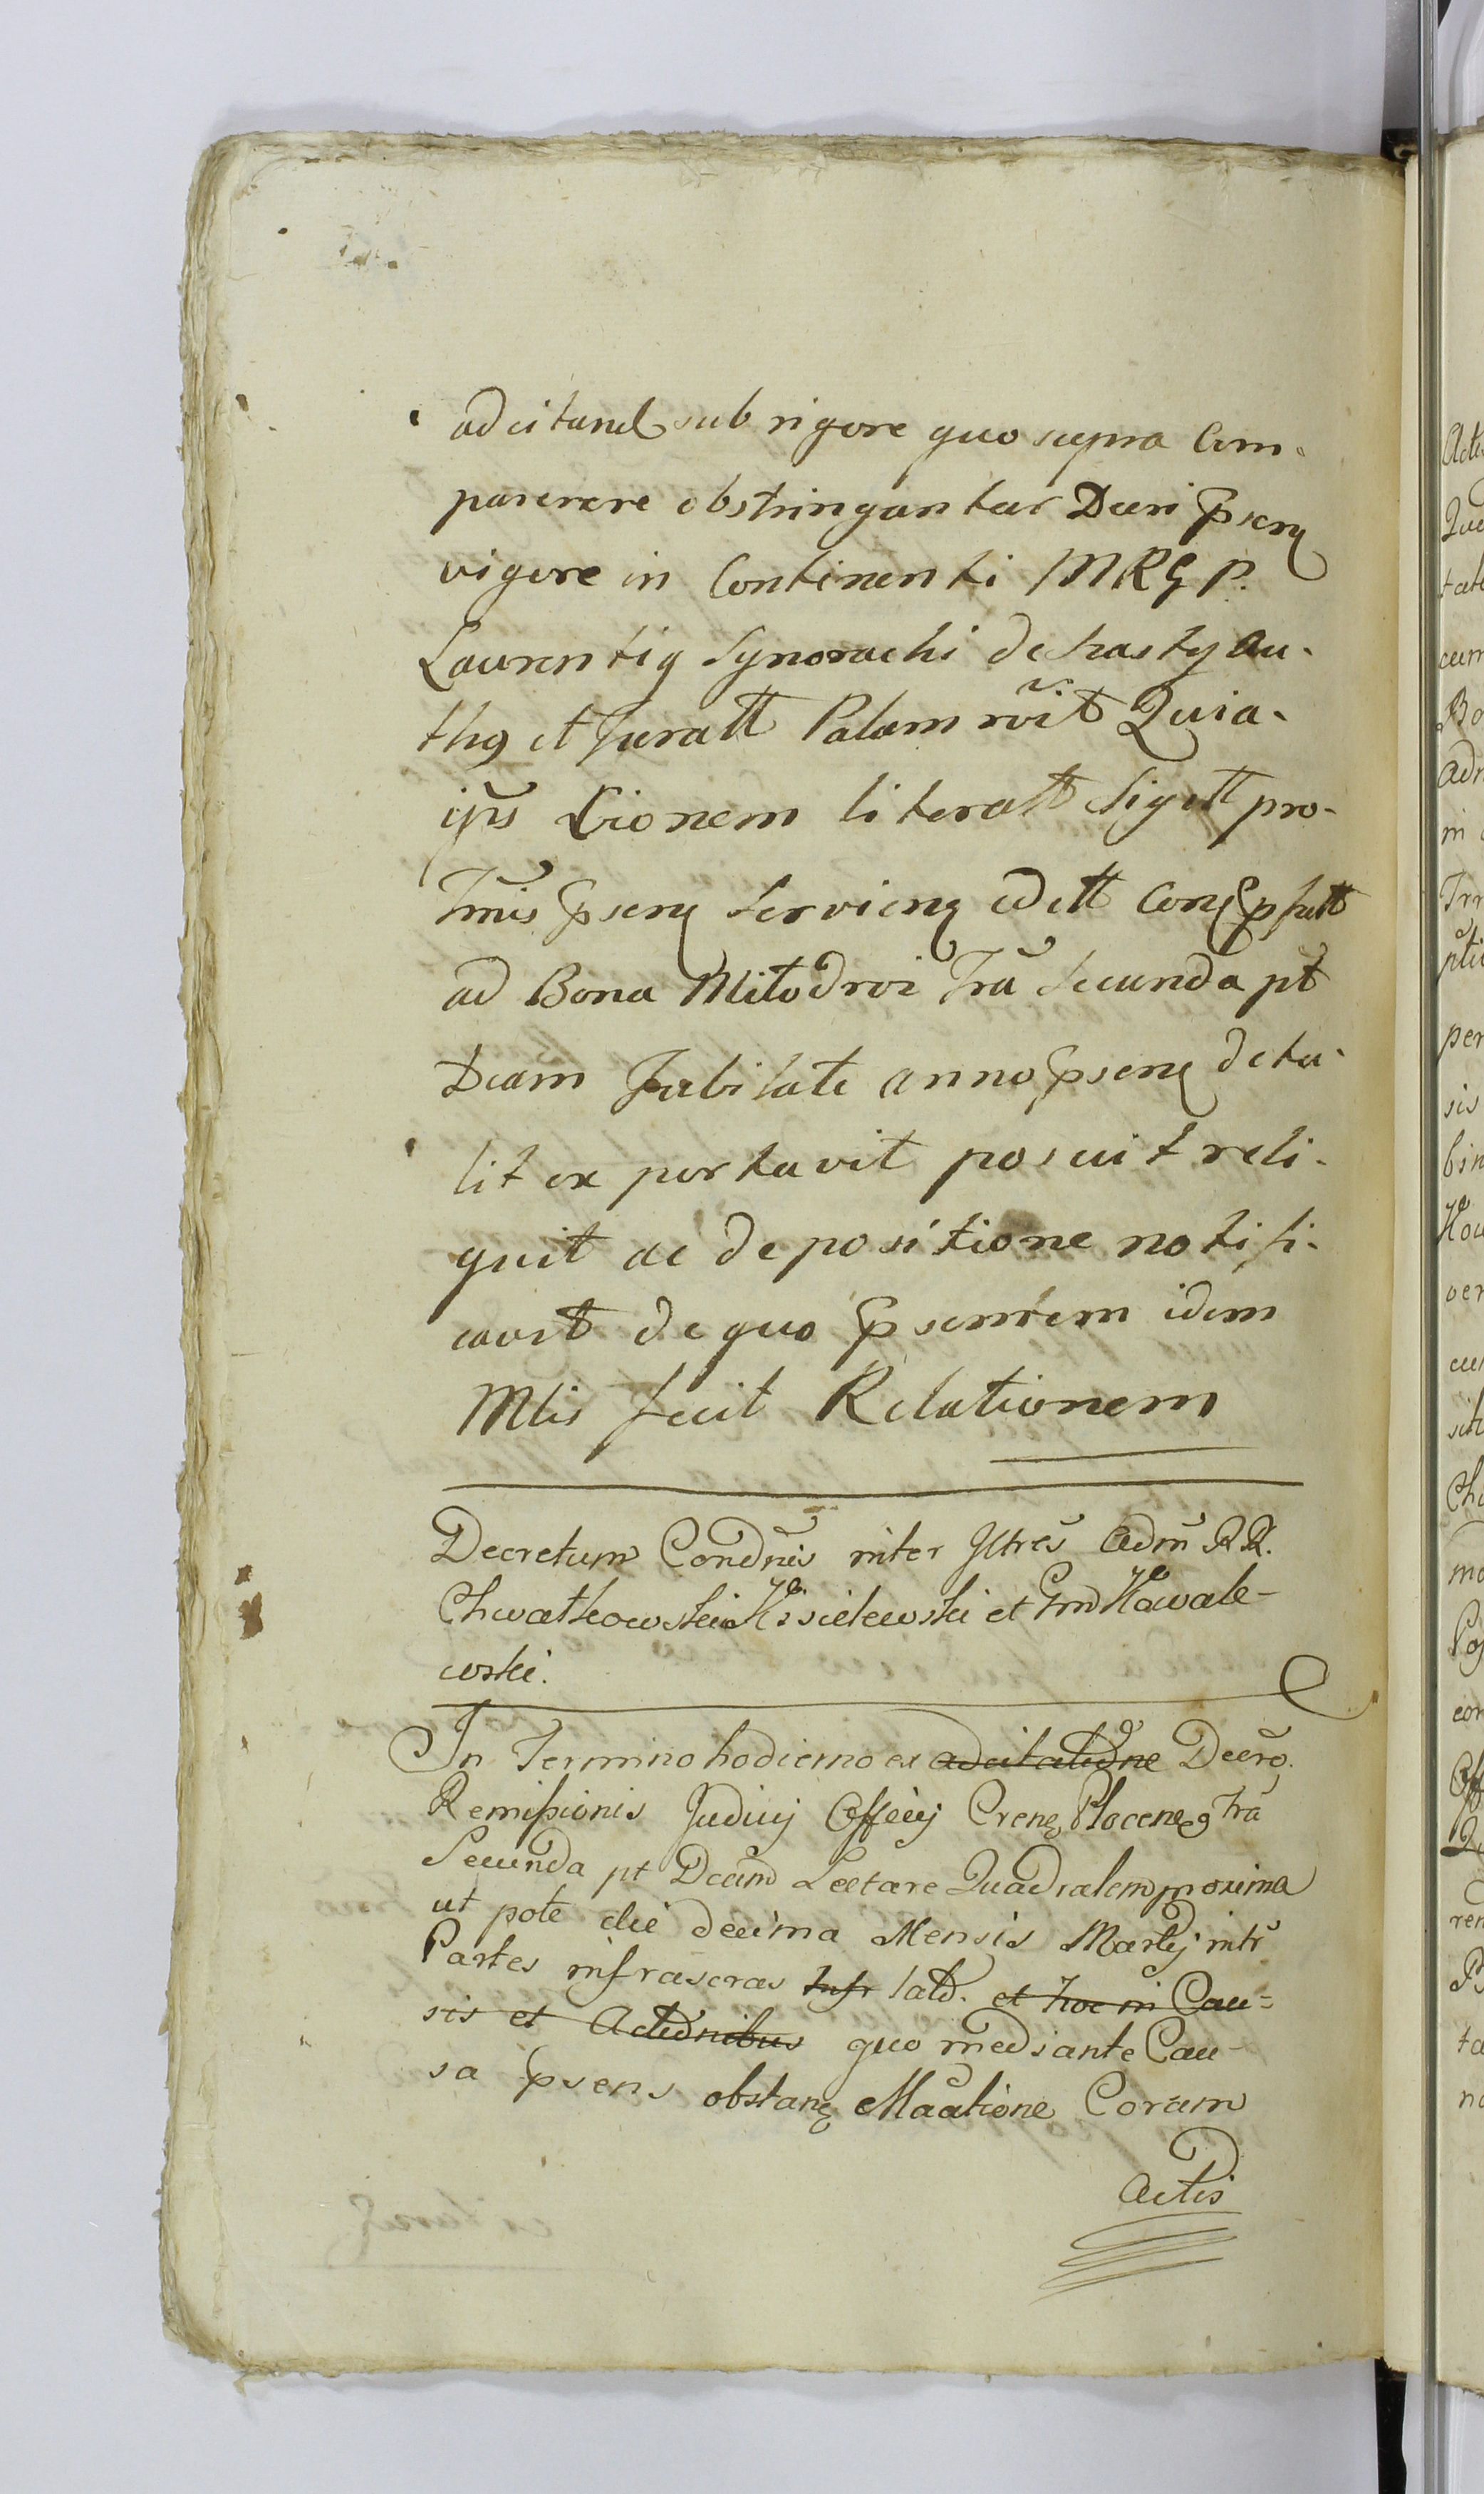 adcitand sub rigore quo supra Com-
parerere obstringantur Decri psens
vigore in Continenti MRGP.
Laurentig Synoracki de hasty au-
thg et Juratt Palam rvit Quia-
ipse Cionem literatt Sigill pro-
Tmis psens Serviens edett Cons
ad Bona Mitodroz fra Secunda pt
Dcam Jubilate anno psens detu-
lit ex portavit posuit reli-
quit ac depositione notifi-
cavit de quo psentem idem
Mlis fecit Relationem
Decretum Condnis inter Iltres Adm RR.
Chwatkowskie Kisielewski et Gnd Kowale-
wski.
In Termino hodierno ex adcitatione Decro.
Remissionis Judicij Officij Crens Plocens fra
Secunda pt Dcam Laetare Quadralem proxima
ut pote die decima Mensis Martij intr
Partes infrascras Infr latd. et hoc in Cau=
sis et Actionibus quo mediante Cau-
sa psens obstans Maatione Coram
Actis